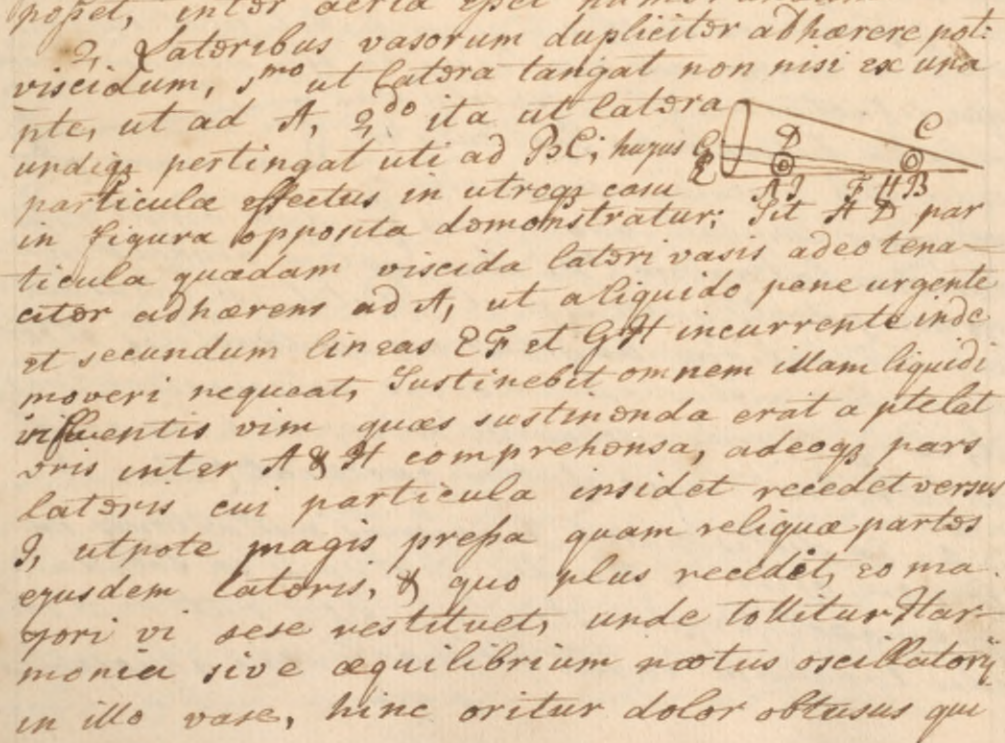 posset, inter
2, Lateribus vasorum dupliciter adhærere pot:
viscidum, 1mo ut latera tangat non nisi ex una
pte, ut ad A, 2do ita ut latera
undiq3 pertingat uti ad BC; hujus
particulæ effectus in utroq3 casu
in figura opposita demonstratur; Sit A D par
ticula quædam viscida lateri vasis adeo tena-
citer adhærens ad A, ut a liquido pene urgente
et secundum lineas EF et GH incurrente inde
moveri nequeat, Sustinebit omnem illam liquidi
influentis vim quæ sustinenda erat a pte lat
eris inter A & H comprehensa, adeoq3 pars
lateris cui particula insidet recedet versus
I, utpote magis pressa quam reliquæ partes
ejusdem lateris, & quo plus recedet, eo ma
jori vi sese restituet, unde tollitur Har-
monia sive æquilibrium motus oscillatorij
in illo vase, hinc oritur dolor obtusus qui
D C
G
E
A I F H B